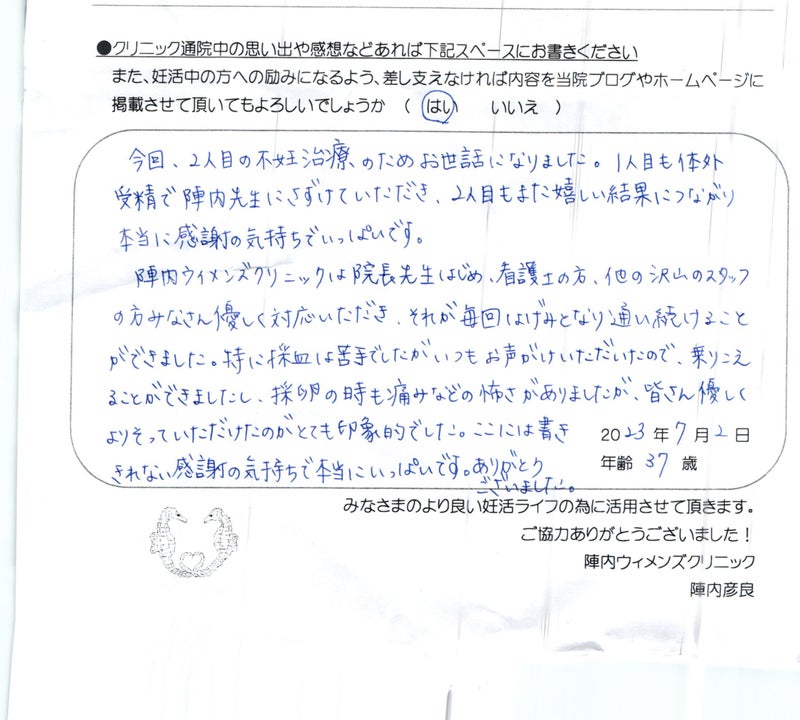 ●クリニック通院中の思い出や感想などあれば下記スペースにお書きください
また、妊活中の方への励みになるよう、差し支えなければ内容を当院ブログやホームページに
掲載させて頂いてもよろしいでしょうか （ はい　いいえ ）
今回、2人目の不妊治療のためお世話になりました。1人目も体外
受精で陣内先生にさずけていただき、2人目もまた嬉しい結果につながり
本当に感謝の気持ちでいっぱいです。
陣内ウィメンズクリニックは院長先生はじめ、看護士の方、他の沢山のスタッフ
の方みなさん優しく対応いただき、それが毎回はげみとなり通い続けること
ができました。特に採血は苦手でしたがいつもお声がけいただいたので、乗りこえ
ることができましたし、採卵の時も痛みなどの怖さがありましたが、皆さん優しく
よりそっていただけたのがとても印象的でした。ここには書き
きれない感謝の気持ちで本当にいっぱいです。ありがとう
ございました。
2023年7月2日
年齢 37 歳
みなさまのより良い妊活ライフの為に活用させて頂きます。
ご協力ありがとうございました！
陣内ウィメンズクリニック
陣内彦良